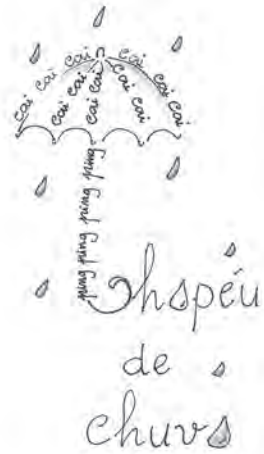 cai cai cai cai cai cai cai
cai cai cai
cai cai cai
cai cai cai
ping ping ping ping
Chapéu
de
chuva